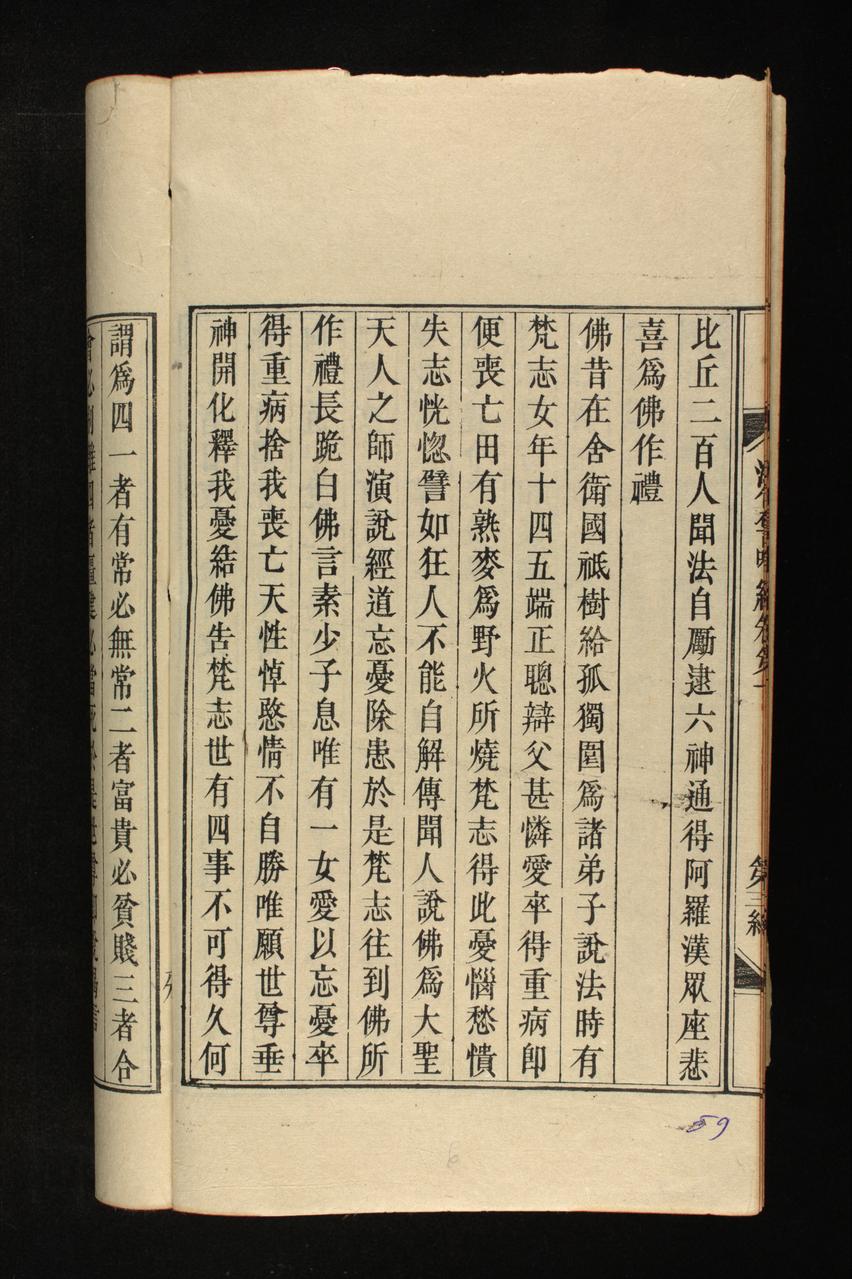 比丘二百人聞法自勵逮六神通得阿羅漢眾座悲
喜爲佛作禮
佛昔在舍衛國祇樹給孤獨園爲諸弟子說法時有
梵志女年十四五端正聰辯父甚憐愛卒得重病即
便喪亡田有熟麥爲野火所燒梵志得此憂惱愁憒
失志恍惚譬如狂人不能自解傳聞人說佛爲大聖
天人之師演說經道忘憂除患於是梵志往到佛所
作禮長跪白佛言素少子息唯有一女愛以忘憂卒
得重病捨我喪亡天性悼愍情不自勝唯願世尊垂
神開化釋我憂結佛告梵志世有四事不可得久何
謂爲四一者有常必無常二者富貴必貧賤三者合
59